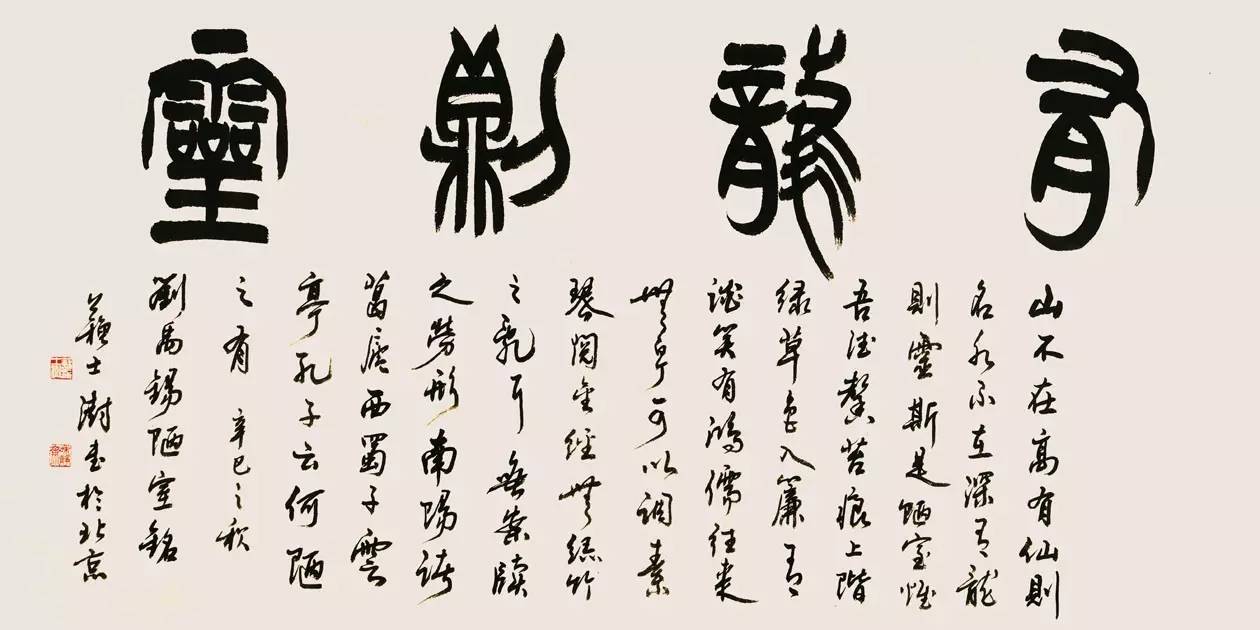 有龍則靈
山不在高有仙則
名水不在深有龍
則靈斯是陋室惟
吾德馨苔痕上階
綠草色入簾青
談笑有鴻儒往來
無白丁可以調素
琴閱金經無絲竹
之亂耳無案牘
之勞形南陽諸
葛廬西蜀子雲
亭孔子云何陋
之有 辛巳之秋
劉禹錫陋室銘
蘇士澍書於北京